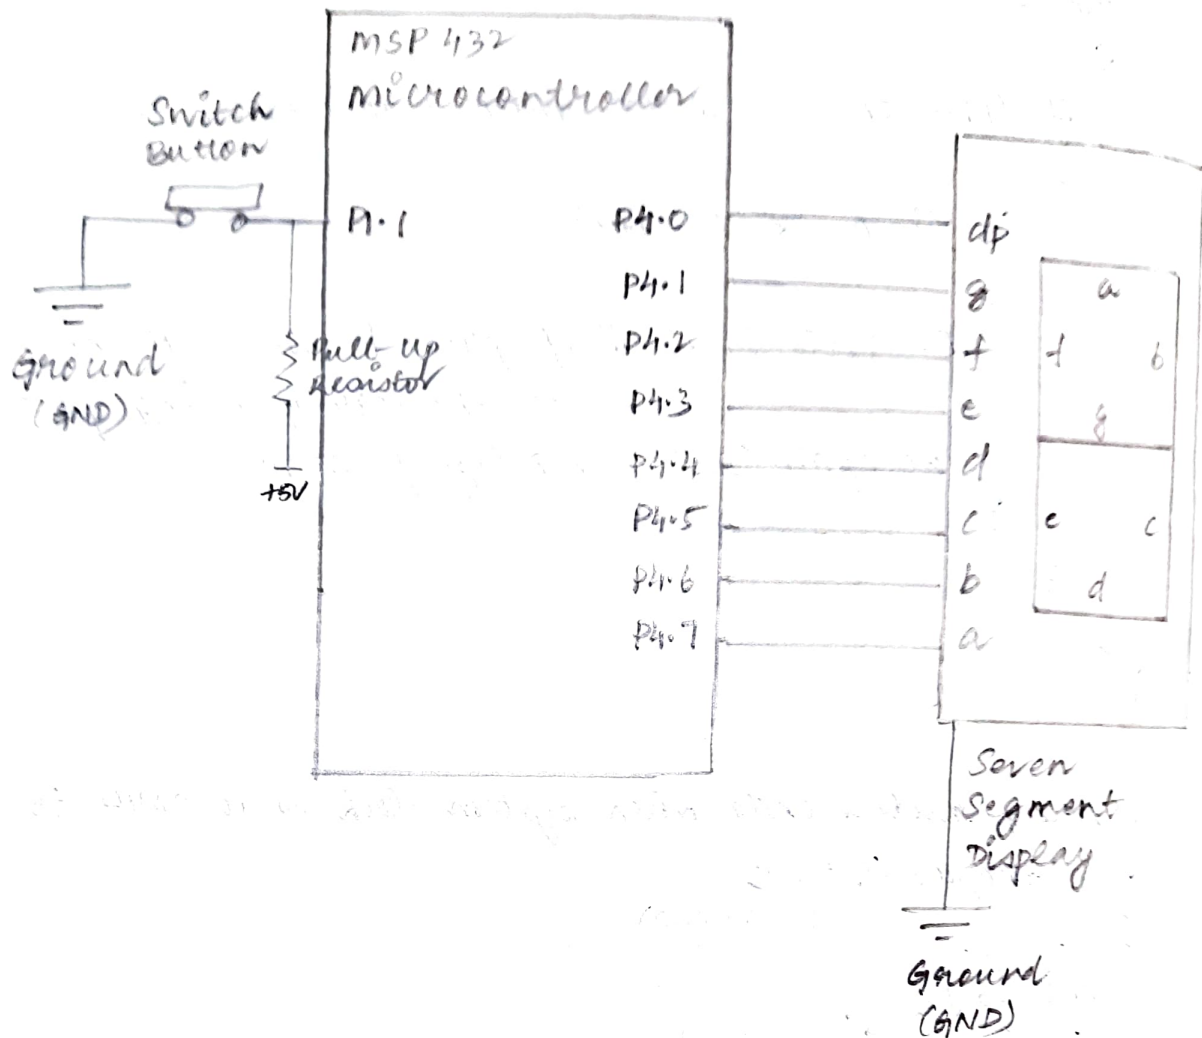 MSP 432
Microcontroller
Switch
Button
P1.1
Ground
(GND)
Pull-up
Resistor
+5V
P4.0
P4.1
P4.2
P4.3
P4.4
P4.5
P4.6
P4.7
dp
g
f
e
d
c
b
a
a
f
b
g
e
c
d
Seven
Segment
Display
Ground
(GND)